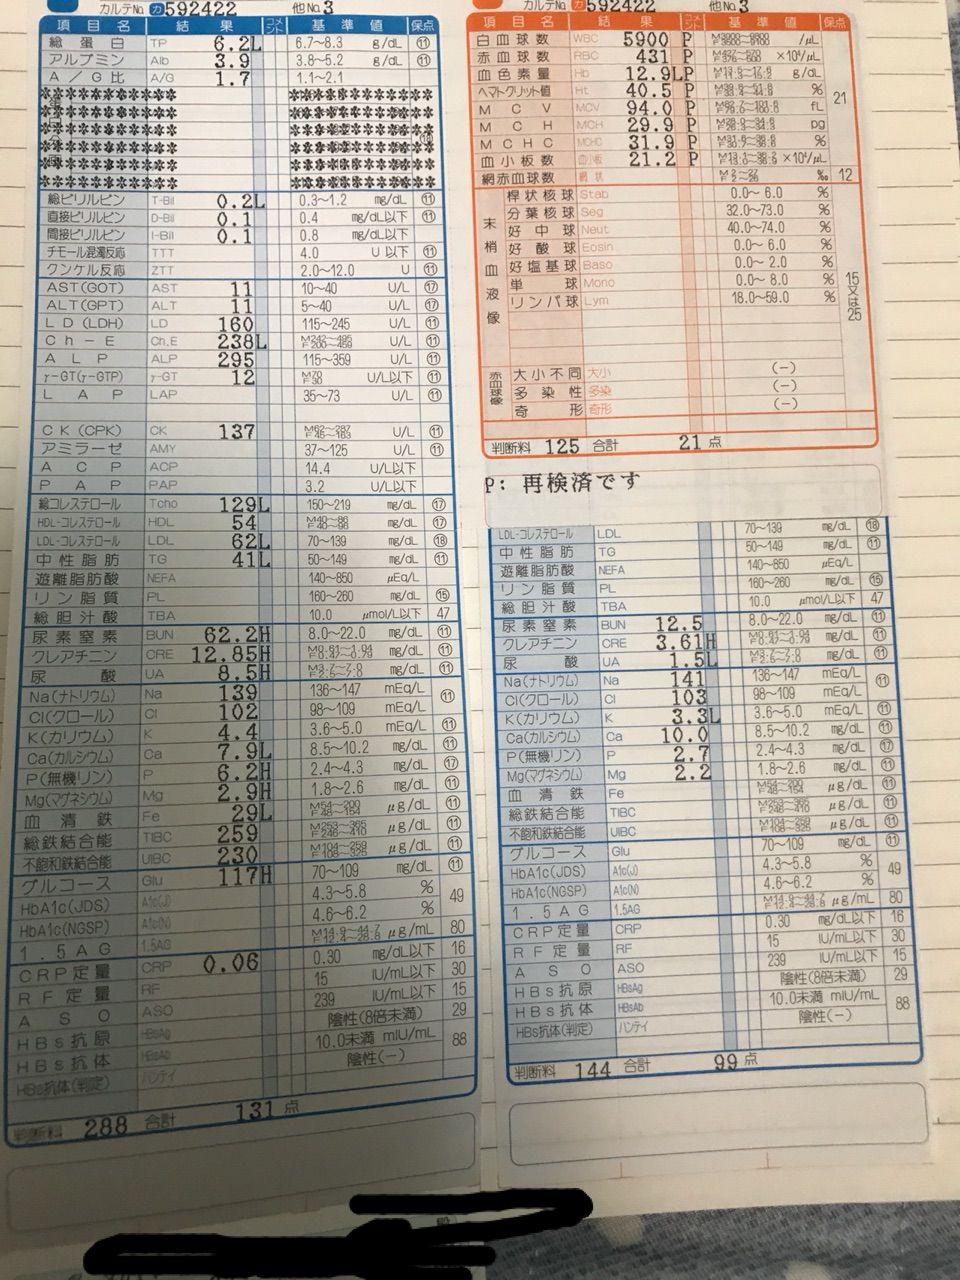 カルテNo. カ592422 他No.3
項目名 結果 コメント 基準値 保点
総蛋白 TP 6.2L 6.7〜8.3 g/dL ⑪
アルブミン Alb 3.9 3.8〜5.2 g/dL ⑪
A/G比 A/G 1.7 1.1〜2.1
総ビリルビン T-Bil 0.2L 0.3〜1.2 mg/dL ⑪
直接ビリルビン D-Bil 0.1 0.4 mg/dL以下 ⑪
間接ビリルビン I-Bil 0.1 0.8 mg/dL以下
チモール混濁反応 TTT 4.0 U以下 ⑪
クンケル反応 ZTT 2.0〜12.0 U ⑪
AST(GOT) AST 11 10〜40 U/L ⑰
ALT(GPT) ALT 11 5〜40 U/L ⑰
LD(LDH) LD 160 115〜245 U/L ⑪
Ch-E Ch.E 238L U/L ⑪
ALP ALP 295 115〜359 U/L ⑪
γ-GT(γ-GTP) γ-GT 12 M70 F30 U/L以下 ⑪
LAP LAP 35〜73 U/L ⑪
CK(CPK) CK 137 U/L ⑪
アミラーゼ AMY 37〜125 U/L ⑪
ACP ACP 14.4 U/L以下
PAP PAP 3.2 U/L以下
総コレステロール Tcho 129L 150〜219 mg/dL ⑰
HDL-コレステロール HDL 54 mg/dL ⑰
LDL-コレステロール LDL 62L 70〜139 mg/dL ⑱
中性脂肪 TG 41L 50〜149 mg/dL ⑪
遊離脂肪酸 NEFA 140〜850 μEq/L
リン脂質 PL 160〜260 mg/dL ⑮
総胆汁酸 TBA 10.0 μmol/L以下 47
尿素窒素 BUN 62.2H 8.0〜22.0 mg/dL ⑪
クレアチニン CRE 12.85H mg/dL ⑪
尿酸 UA 8.5H mg/dL ⑪
Na(ナトリウム) Na 139 136〜147 mEq/L ⑪
Cl(クロール) Cl 102 98〜109 mEq/L
K(カリウム) K 4.4 3.6〜5.0 mEq/L ⑪
Ca(カルシウム) Ca 7.9L 8.5〜10.2 mg/dL ⑪
P(無機リン) P 6.2H 2.4〜4.3 mg/dL ⑰
Mg(マグネシウム) Mg 2.9H 1.8〜2.6 mg/dL ⑪
血清鉄 Fe 29L μg/dL ⑪
総鉄結合能 TIBC 259 μg/dL ⑪
不飽和鉄結合能 UIBC 230 μg/dL ⑪
グルコース Glu 117H 70〜109 mg/dL ⑪
HbA1c(JDS) A1c(J) 4.3〜5.8 % 49
HbA1c(NGSP) A1c(N) 4.6〜6.2 %
1.5AG 1.5AG μg/mL 80
CRP定量 CRP 0.06 0.30 mg/dL以下 16
RF定量 RF 15 IU/mL以下 30
ASO ASO 239 IU/mL以下 15
HBs抗原 HBsAg 陰性(8倍未満) 29
HBs抗体 HBsAb 10.0未満 mIU/mL 88
HBs抗体(判定) ハンテイ 陰性(-)
判断料 288 合計 131 点
カルテNo. カ592422 他No.3
項目名 結果 コメント 基準値 保点
白血球数 WBC 5900 P /μL
赤血球数 RBC 431 P ×10⁴/μL
血色素量 Hb 12.9LP g/dL
ヘマトクリット値 Ht 40.5 P %
MCV MCV 94.0 P fL 21
MCH MCH 29.9 P pg
MCHC MCHC 31.9 P %
血小板数 血小板 21.2 P ×10⁴/μL
網赤血球数 網状 ‰ 12
末梢血液像
桿状核球 Stab 0.0〜 6.0 %
分葉核球 Seg 32.0〜73.0 %
好中球 Neut 40.0〜74.0 %
好酸球 Eosin 0.0〜 6.0 %
好塩基球 Baso 0.0〜 2.0 %
単球 Mono 0.0〜 8.0 %
リンパ球 Lym 18.0〜59.0 %
15又は25
赤血球像
大小不同 大小 (-)
多染性 多染 (-)
奇形 奇形 (-)
判断料 125 合計 21 点
P: 再検済です
LDL-コレステロール LDL 70〜139 mg/dL ⑱
中性脂肪 TG 50〜149 mg/dL ⑪
遊離脂肪酸 NEFA 140〜850 μEq/L
リン脂質 PL 160〜260 mg/dL ⑮
総胆汁酸 TBA 10.0 μmol/L以下 47
尿素窒素 BUN 12.5 8.0〜22.0 mg/dL ⑪
クレアチニン CRE 3.61H mg/dL ⑪
尿酸 UA 1.5L mg/dL ⑪
Na(ナトリウム) Na 141 136〜147 mEq/L ⑪
Cl(クロール) Cl 103 98〜109 mEq/L
K(カリウム) K 3.3L 3.6〜5.0 mEq/L ⑪
Ca(カルシウム) Ca 10.0 8.5〜10.2 mg/dL ⑪
P(無機リン) P 2.7 2.4〜4.3 mg/dL ⑰
Mg(マグネシウム) Mg 2.2 1.8〜2.6 mg/dL ⑪
血清鉄 Fe μg/dL ⑪
総鉄結合能 TIBC μg/dL ⑪
不飽和鉄結合能 UIBC μg/dL ⑪
グルコース Glu 70〜109 mg/dL ⑪
HbA1c(JDS) A1c(J) 4.3〜5.8 % 49
HbA1c(NGSP) A1c(N) 4.6〜6.2 %
1.5AG 1.5AG μg/mL 80
CRP定量 CRP 0.30 mg/dL以下 16
RF定量 RF 15 IU/mL以下 30
ASO ASO 239 IU/mL以下 15
HBs抗原 HBsAg 陰性(8倍未満) 29
HBs抗体 HBsAb 10.0未満 mIU/mL 88
HBs抗体(判定) ハンテイ 陰性(-)
判断料 144 合計 99 点